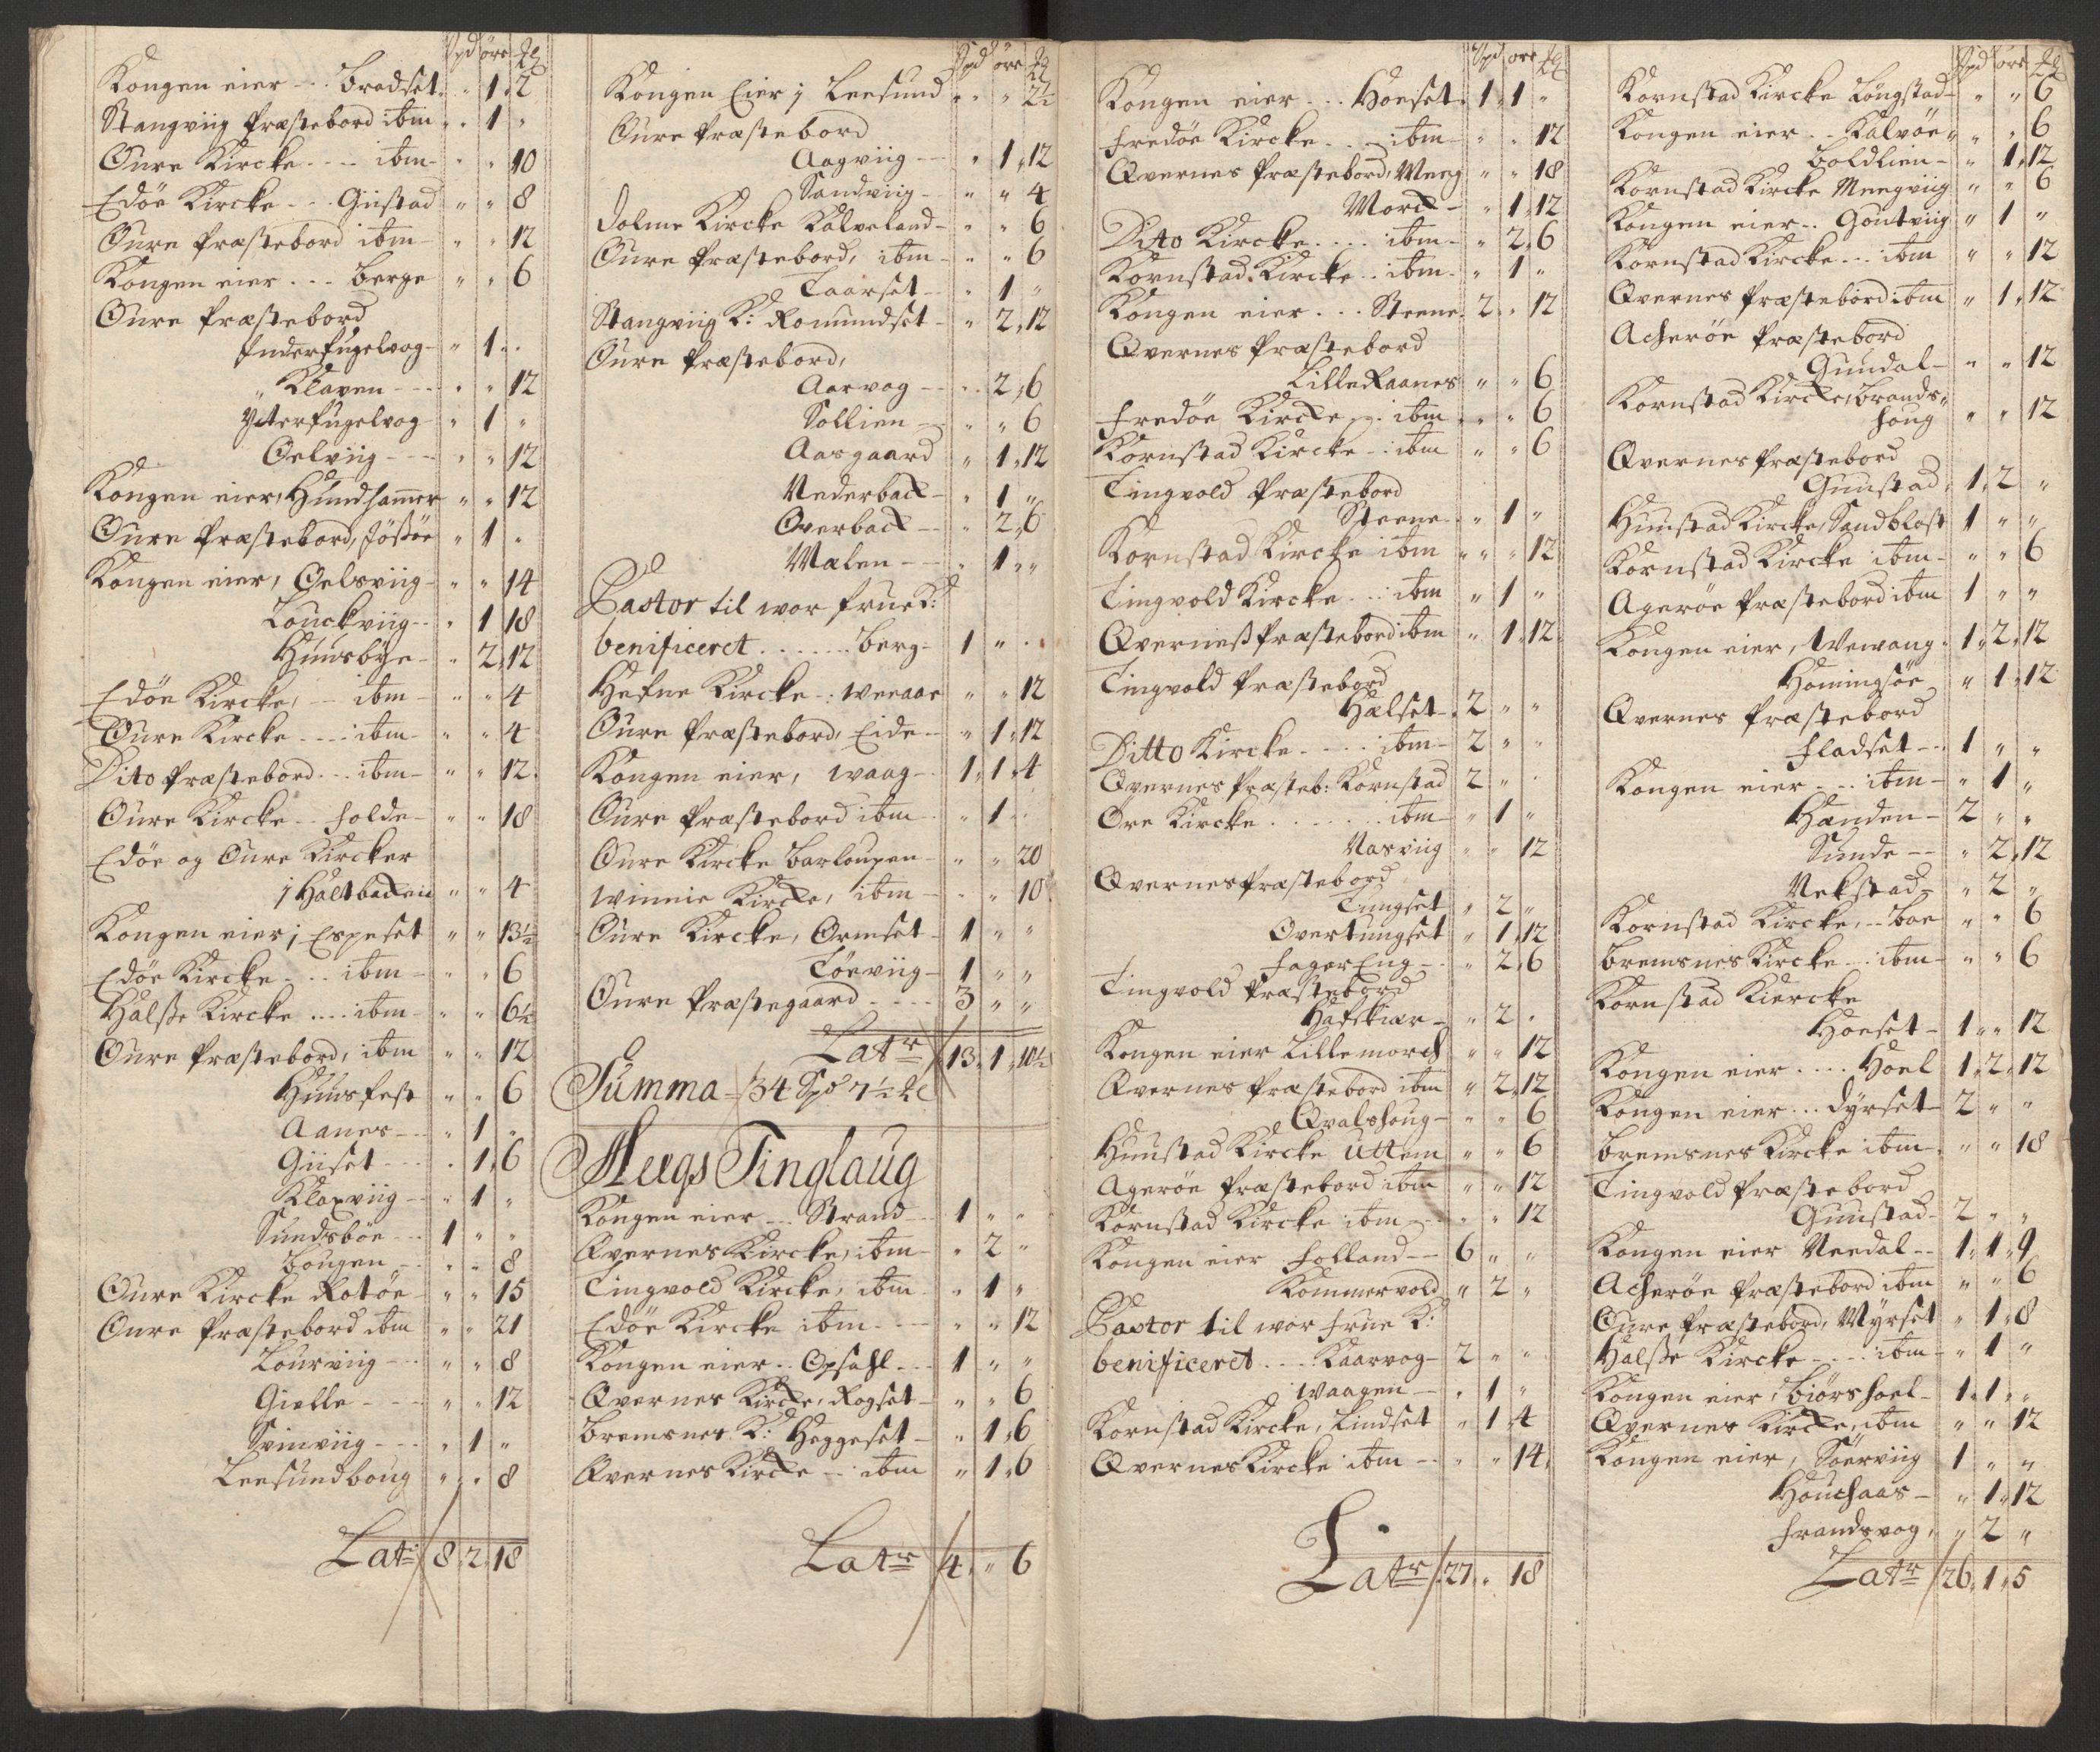 Spd öre ℳ
Kongen eier - . . Brodset . „ 1 „ 2
Stangviig Præstebord ibm „ 1 „
Oure Kircke - - - ibm - „ „ 10
Edöe Kircke - - . Giistad „ „ 8
Oure Præstebord ibm - „ „ 12
Kongen eier . . . Berge „ „ 6
Oure Præstebord
Inderfugelvog - „ 1 „
„ Klaven - - - „ „ 12
Ytterfugelvog - „ 1 „
Oelviig - - - „ „ 12
Kongen eier, Hundhammer „ „ 12
Oure Præstebord, Jößöe „ 1 „
Kongen eier, Oelsviig - „ „ 14
Louckviig - - „ 1 18
Huusbye - „ 2 „ 12
Edöe Kircke, - - ibm - „ „ 4
Oure Kircke - - - ibm - „ „ 4
Dito Præstebord . . . ibm - „ „ 12
Oure Kircke - - Folde - „ „ 18
Edöe og Oure Kircker
i Haltbacken „ „ 4
Kongen eier i Espeset „ „ 13½
Edöe Kircke - . . ibm - „ „ 6
Halße Kircke . . . . ibm - „ „ 6½
Oure Præstebord, ibm „ „ 12
Huusfest „ „ 6
Aanes - - „ 1 „
Giiset - - - „ 1 „ 6
Klaxviig - - „ 1 „
Sundsböe - - 1 „ „
Bougen - - „ „ 8
Oure Kircke Rotöe - „ „ 15
Oure Præstebord ibm „ „ 21
Lourviig - - „ „ 8
Gielle - - - „ „ 12
Svinviig - - - „ 1 „
Leesundboug „ „ 8
Latr 8 „ 2 „ 18
Spd öre ℳ
Kongen Eier i Leesund „ „ 2½
Oure Præstebord
Aagviig - - „ 1 „ 12
Sandviig - „ „ 4
Dolme Kircke Kalveland - „ „ 6
Oure Præstebord, ibm - „ „ 6
Taarset - „ 1 „
Stangviig K: Romundset - „ 2 „ 12
Oure Præstebord,
Aarvog - - „ 2 „ 6
Sollien - - „ „ 6
Aasgaard „ 1 „ 12
Nederback - „ 1 „
Overback - - „ 2 „ 6
Mælen - - - „ 1 „ „
Pastor til wor frue K:
benificeret . . . . . . . Berg - 1 „ „
Hefne Kircke - : Weraae „ „ 12
Oure Præstebord, Eide - „ 1 „ 12
Kongen eier, Waag - - 1 „ 1 „ 4
Oure Præstebord ibm - „ 1 „
Oure Kircke Barloupen - „ „ 20
Winnie Kircke, ibm - „ „ 10
Oure Kircke, Ormset - 1 „ „
Töeviig - 1 „ „
Oure Præstegaard - - - 3 „ „
Latr 13 „ 1 „ 10½
Summa - 34 Spd 7½ ℳ
Meugs Tinglaug
Kongen eier - - . Strand - - 1 „ „
Qvernes Kircke, ibm - „ 2 „
Tingvold Kircke, ibm - „ 1 „
Edöe Kircke ibm - - - „ „ 12
Kongen eier - . Opsahl - - - 1 „ „
Qvernes Kircke, Rogset - „ „ 6
Bremsnes K: Heggeset - „ 1 „ 6
Qvernes Kircke - - ibm „ 1 „ 6
Latr 4 „ „ 6
Spd öre ℳ
Kongen eier . . . Honset . 1 „ 1 „
Fredöe Kircke . . . ibm - „ „ 12
Qvernes Præstebord, Meeg „ „ 18
Morck - „ 1 „ 12
Dito Kircke . . . . ibm - „ 2 „ 6
Kornstad Kircke . . ibm - „ 1 „
Kongen eier . . . Steene . 2 „ 12
Qvernes Præstebord
Lille Raanes „ „ 6
Fredöe Kircke - . . ibm „ „ 6
Kornstad Kircke - : ibm „ „ 6
Tingvold Præstebord
Steene - „ 1 „
Kornstad Kircke ibm „ „ 12
Tingvold Kircke . . : ibm „ 1 „
Qverneß Præstebord ibm „ 1 „ 12
Tingvold Præstebord
Hælset - 2 „ „
Ditto Kircke - - - - ibm - 2 „ „
Qvernes Præsteb: Kornstad 2 „ „
Öre Kircke . . . . . . . ibm - „ 1 „
Nasviig „ „ 12
Qvernes Præstebord
Tungset „ 2 „
Overtungset „ 1 „ 12
Fager Eng - - „ 2 „ 6
Tingvold Præstebord
Hafskiær - „ 2 „
Kongen eier Lillemorch „ „ 12
Qvernes Præstebord ibm „ 2 „ 12
Qvalshoug - „ „ 6
Huustad Kircke Uttem „ „ 6
Ageröe Præstebord ibm „ „ 12
Kornstad Kircke ibm - - „ „ 12
Kongen eier Folland - - 6 „ „
Kommervold „ 2 „
Pastor til wor frue K:
benificeret . . . : Kaarvog - 2 „ „
Waagen - „ 1 „
Kornstad Kircke, Lindset „ 1 „ 4
Qvernes Kircke ibm - - „ „ 14
Latr 27 „ „ 18
Spd öre ℳ
Kornstad Kircke Longstad - „ „ 6
Kongen eier . . Kalvöe „ „ 6
Boldlien - „ 1 „ 12
Kornstad Kircke Meegviig „ „ 6
Kongen eier . . Goutviig „ 1 „
Kornstad Kircke . . . ibm „ „ 12
Qvernes Præstebord ibm „ 1 „ 12
Acheröe Præstebord
Guudal - „ „ 12
Kornstad Kircke, Brands-
houg „ „ 12
Qvernes Præstebord
Guustad . 1 „ 2 „
Huustad Kircke, Sandblost 1 „ „
Kornstad Kircke ibm - „ „ 6
Ageröe Præstebord ibm 1 „ „
Kongen eier, Wewang . 1 „ 2 „ 12
Homingsöe „ 1 „ 12
Qvernes Præstebord
Fladset - - 1 „ „
Kongen eier - . . ibm - „ 1 „
Hænden - 2 „ „
Sunde - - „ 2 „ 12
Nekstad - „ 2 „
Kornstad Kircke, - - Boe „ „ 6
Bremsnes Kircke . . : ibm - „ „ 6
Kornstad Kiercke
Honset - 1 „ „ 12
Kongen eier . . . . Hoel 1 „ 2 „ 12
Kongen eier . . . Dyrset - 2 „ „
Bremsnes Kircke ibm . „ „ 18
Tingvold Præstebord
Guustad - 2 „ „
Kongen eier Needal - - 1 „ 1 „ 9
Acheröe Præstebord ibm „ „ 6
Oure Præstebord, Myrset „ 1 „ 8
Halße Kircke - - - . ibm - „ 1 „
Kongen eier, Biörshoel - 1 „ 1 „
Qvernes Kircke, ibm „ „ 12
Kongen eier, Söerviig 1 „ „
Houchaas - „ 1 „ 12
Frandsvog „ 2 „
Latr 26 „ 1 „ 5